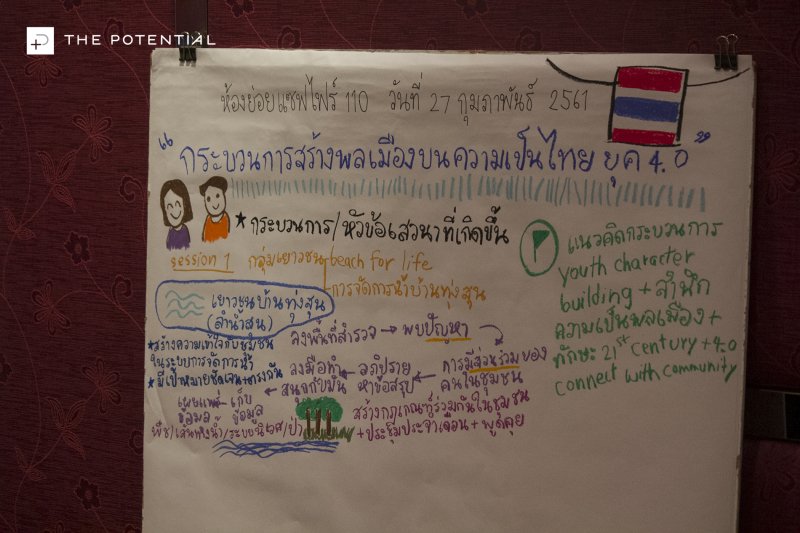 THE POTENTIAL
ห้องย่อยแซฟไฟร์ 110 วันที่ 27 กุมภาพันธ์ 2561
"กระบวนการสร้างพลเมืองบนความเป็นไทย ยุค 4.0"
* กระบวนการ/หัวข้อเสวนาที่เกิดขึ้น
session 1 กลุ่มเยาวชน beach for life
การจัดการน้ำบ้านทุ่งสุน
เยาวชนบ้านทุ่งสุน
(ลำน้ำสุน)
* สร้างความเข้าใจกับชุมชน
ในระบบการจัดการน้ำ
* มีเป้าหมายชัดเจน + ตรงกัน
ลงพื้นที่สำรวจ → พบปัญหา
การมีส่วนร่วมของ
คนในชุมชน
← อภิปราย
หาข้อสรุป
← ลงมือทำ
สนุกกับมัน
← เก็บ
ข้อมูล
เผยแพร่
ข้อมูล
พืช/เส้นทางน้ำ/ระบบนิเวศ/ป่า
สร้างกฎเกณฑ์ร่วมกันในชุมชน
+ ประชุมประจำเดือน + พูดคุย
แนวคิดกระบวนการ
youth character
building + สำนึก
ความเป็นพลเมือง +
ทักษะ 21st century + 4.0
connect with community